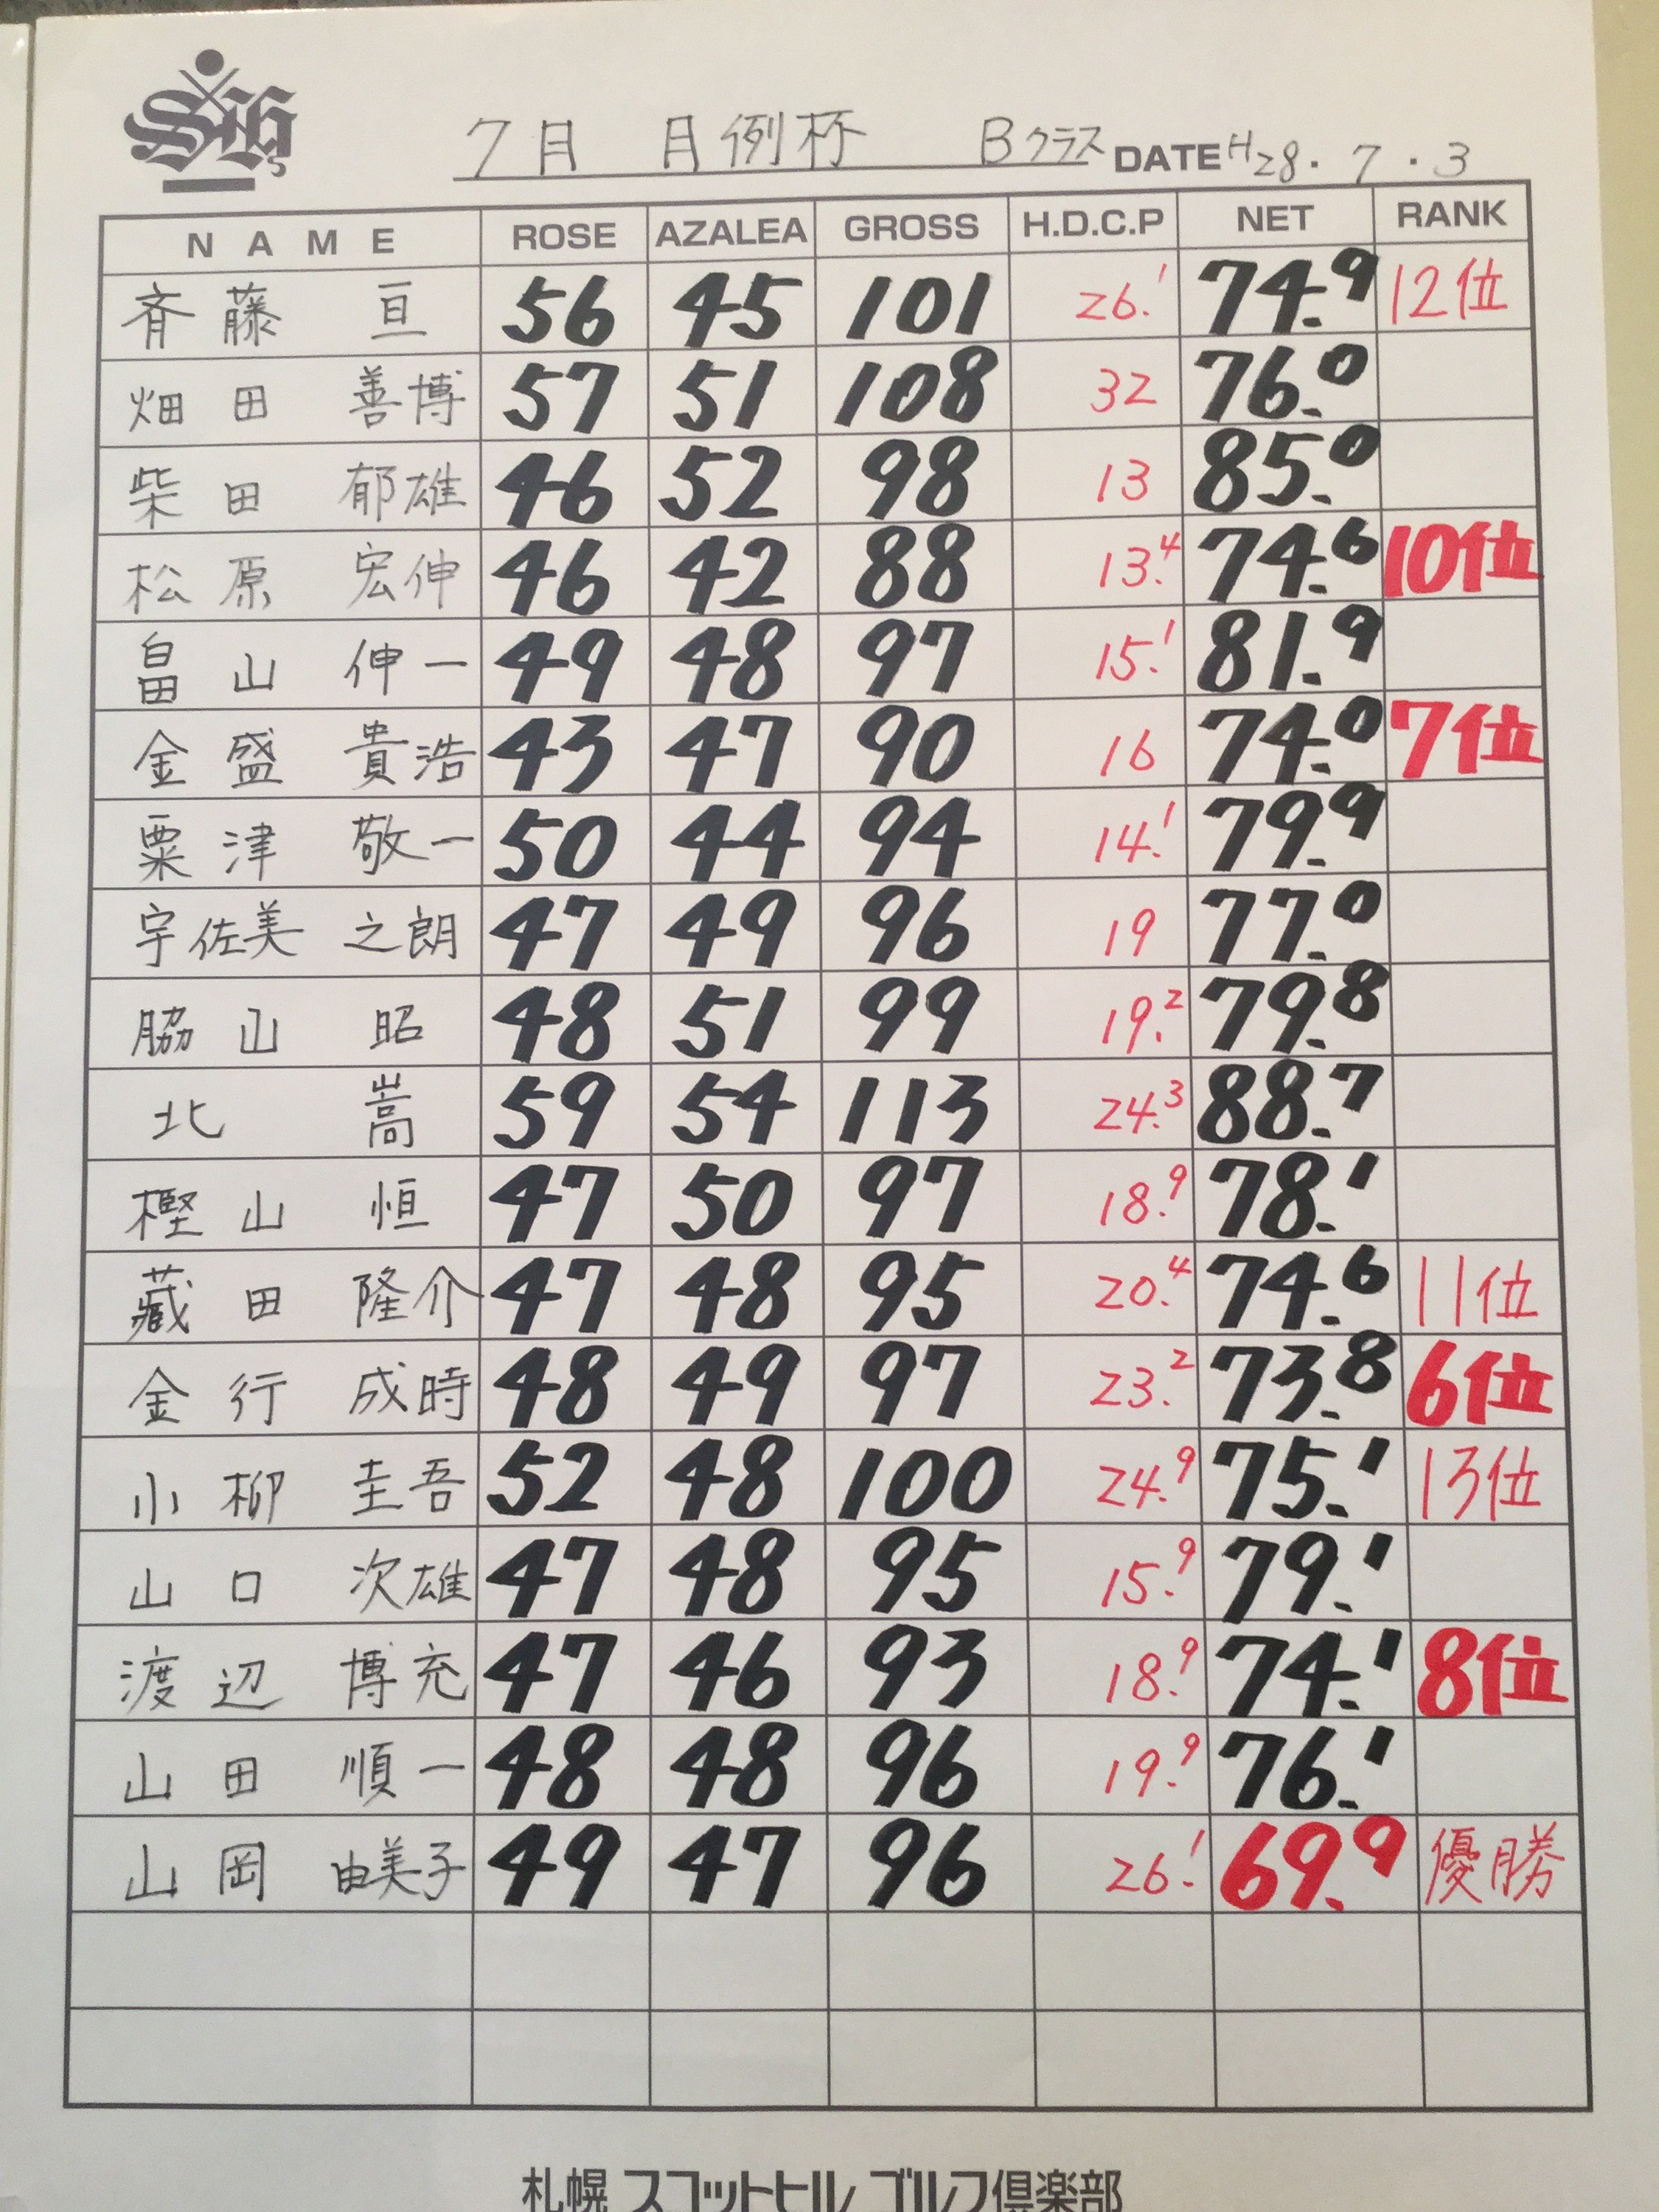 SHG
7月 月例杯 Bクラス DATE H28.7.3
NAME ROSE AZALEA GROSS H.D.C.P NET RANK
斉藤 亘 56 45 101 26.1 74.9 12位
畑田 善博 57 51 108 32 76.0
柴田 郁雄 46 52 98 13 85.0
松原 宏伸 46 42 88 13.4 74.6 10位
畠山 伸一 49 48 97 15.1 81.9
金盛 貴浩 43 47 90 16 74.0 7位
粟津 敬一 50 44 94 14.1 79.9
宇佐美 之朗 47 49 96 19 77.0
脇山 昭 48 51 99 19.2 79.8
北 嵩 59 54 113 24.3 88.7
樫山 恒 47 50 97 18.9 78.1
藏田 隆介 47 48 95 20.4 74.6 11位
金行 成時 48 49 97 23.2 73.8 6位
小柳 圭吾 52 48 100 24.9 75.1 13位
山口 次雄 47 48 95 15.9 79.1
渡辺 博充 47 46 93 18.9 74.1 8位
山田 順一 48 48 96 19.9 76.1
山岡 由美子 49 47 96 26.1 69.9 優勝
札幌 スコットヒル ゴルフ倶楽部